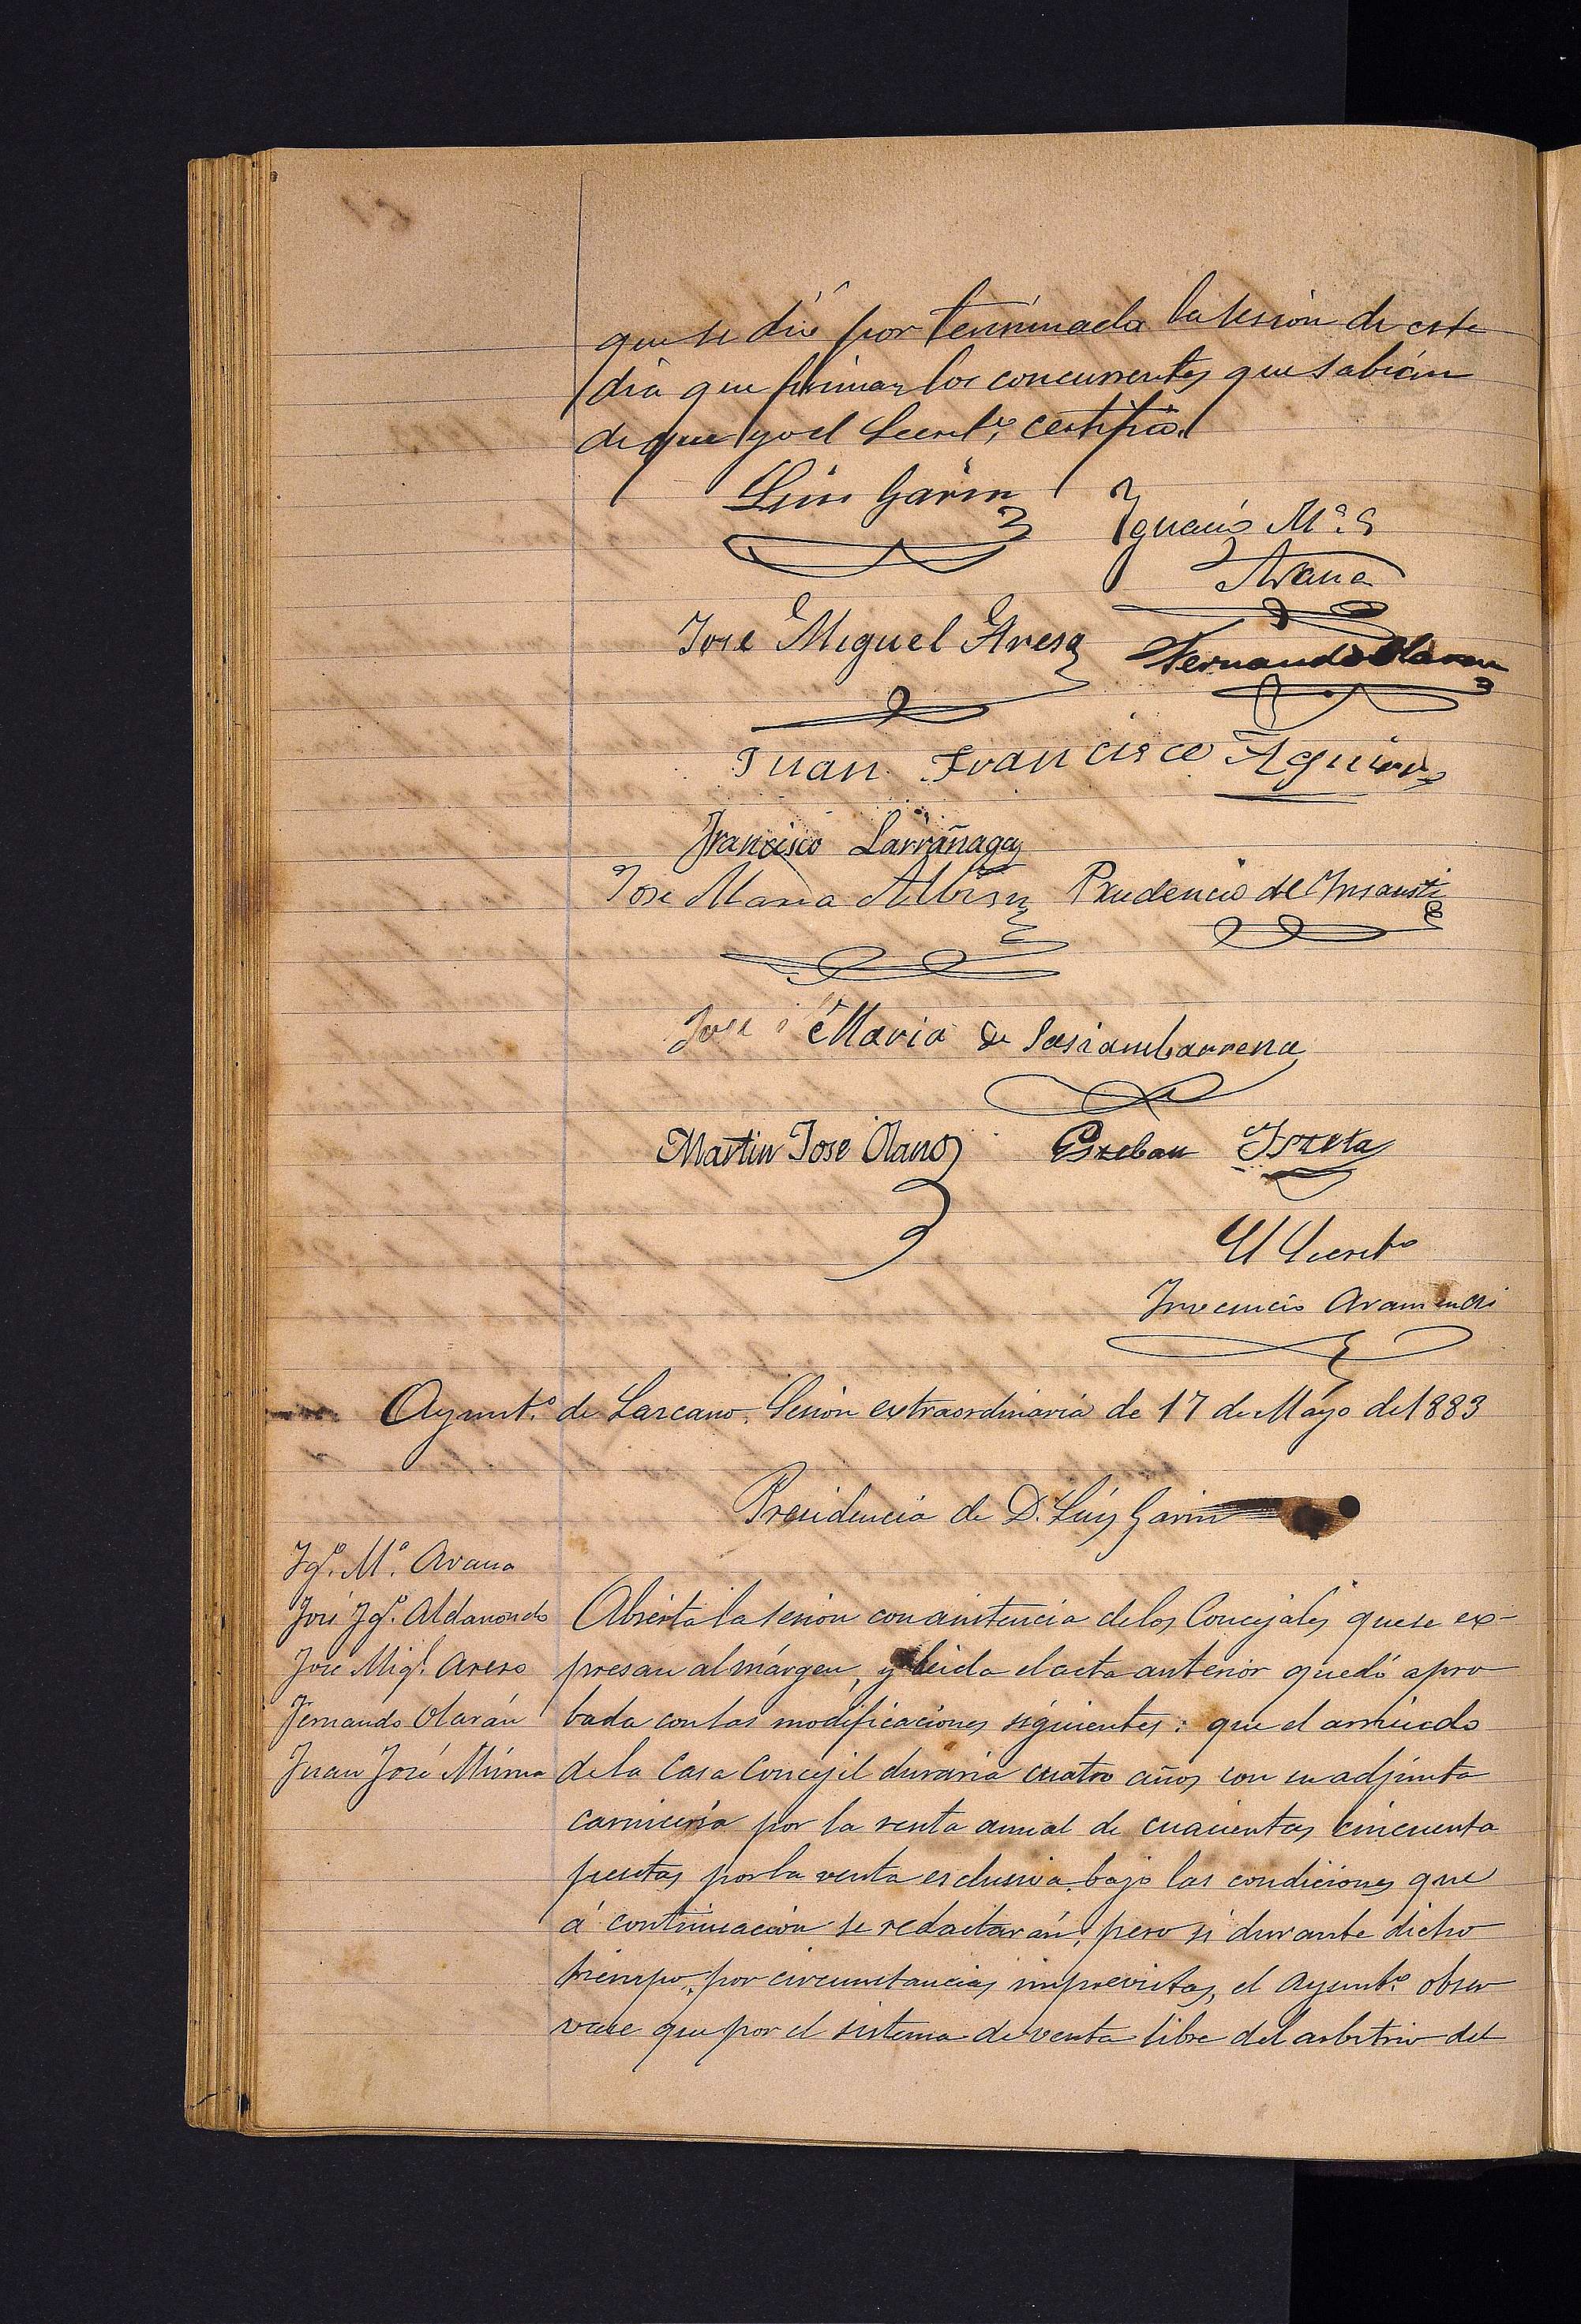 que se dió por terminada la sesion de este
dia que firman los concurrentes que sabián
de que yo el Secret.º certifico.
Luis Garin
Ignacio M.ª
Arana
José Miguel Areso
Fernando Olaran
Juan Francisco Aguirre
Francisco Larrañaga
Jose Maria Albisu Prudencio de Insausti
José Maria de Sasiambarrena
Martin José Olano Esteban Iszeta
El Secret.º
Inocencio Aramendi
Ayunt.º de Lazcano. Sesion extraordinaria de 17 de Mayo de 1883
Presidencia de D. Luis Garin
Ig.º M.ª Arana
José Ig.º Aldanondo
José Mig.l Areso
Fernando Olarán
Juan José Múrua
Abierta la sesion con asistencia de los Concejales que se ex-
presan al márgen, y leida el acta anterior quedó apro
bada con las modificaciones siguientes: que el arriendo
de la Casa Concejil duraria cuatro años con su adjunta
carniceria por la renta anual de cuacientas cincuenta
pesetas por la venta esclusiva bajo las condiciones que
á continuacion se redactarán, pero si durante dicho
tiempo, por circunstancias imprevistas, el Ayunt.º obser
vase que por el sistema de venta libre del arbitrio del